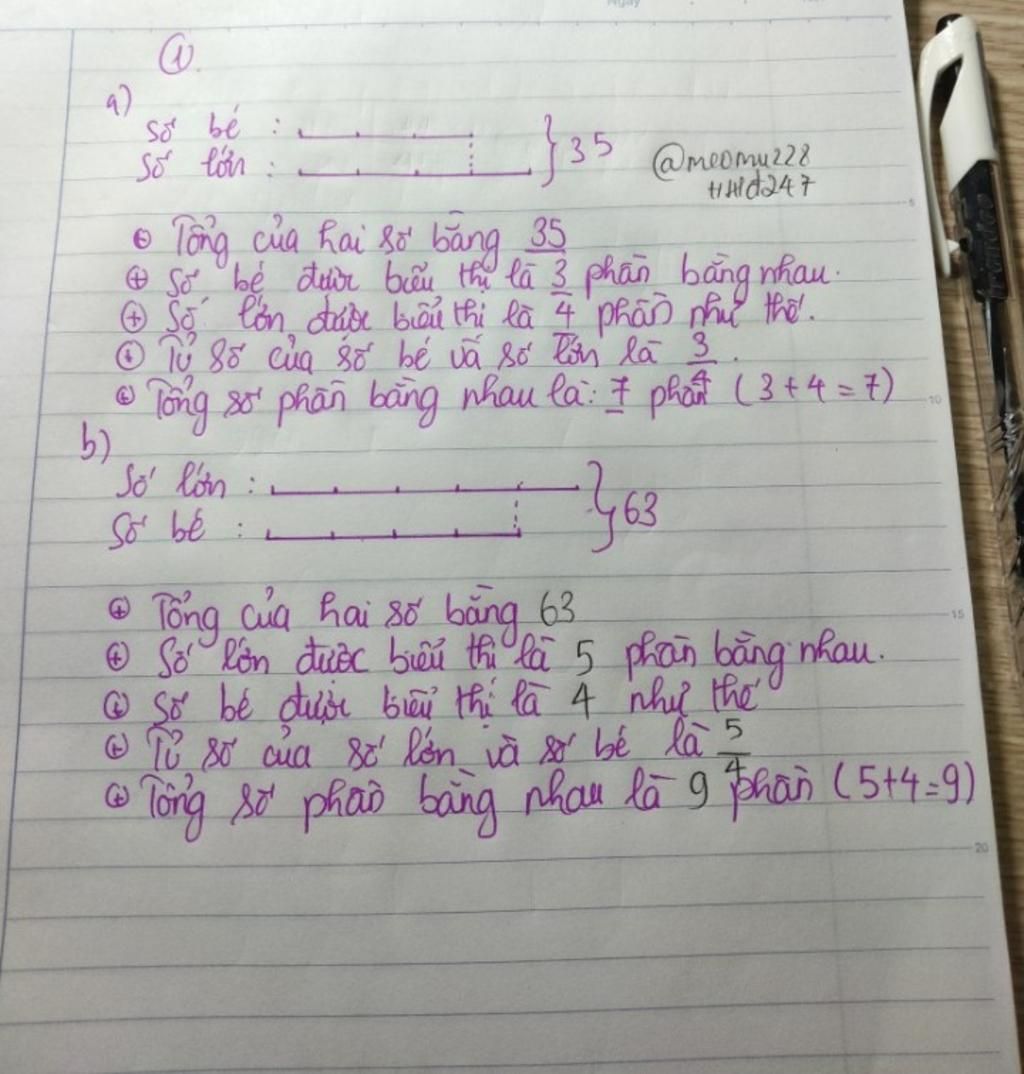 ①.
a)
Số bé :
Số lớn :
35
@meomu228
HHđ247
Tổng của hai số bằng 35
Số bé được biểu thị là 3 phần bằng nhau.
Số lớn được biểu thị là 4 phần như thế.
Tỉ số của số bé và số lớn là 3/4.
Tổng số phần bằng nhau là: 7 phần (3+4=7)
b)
Số lớn :
Số bé :
63
Tổng của hai số bằng 63
Số lớn được biểu thị là 5 phần bằng nhau.
Số bé được biểu thị là 4 như thế
Tỉ số của số lớn và số bé là 5/4
Tổng số phần bằng nhau là 9 phần (5+4=9)
5
10
15
20